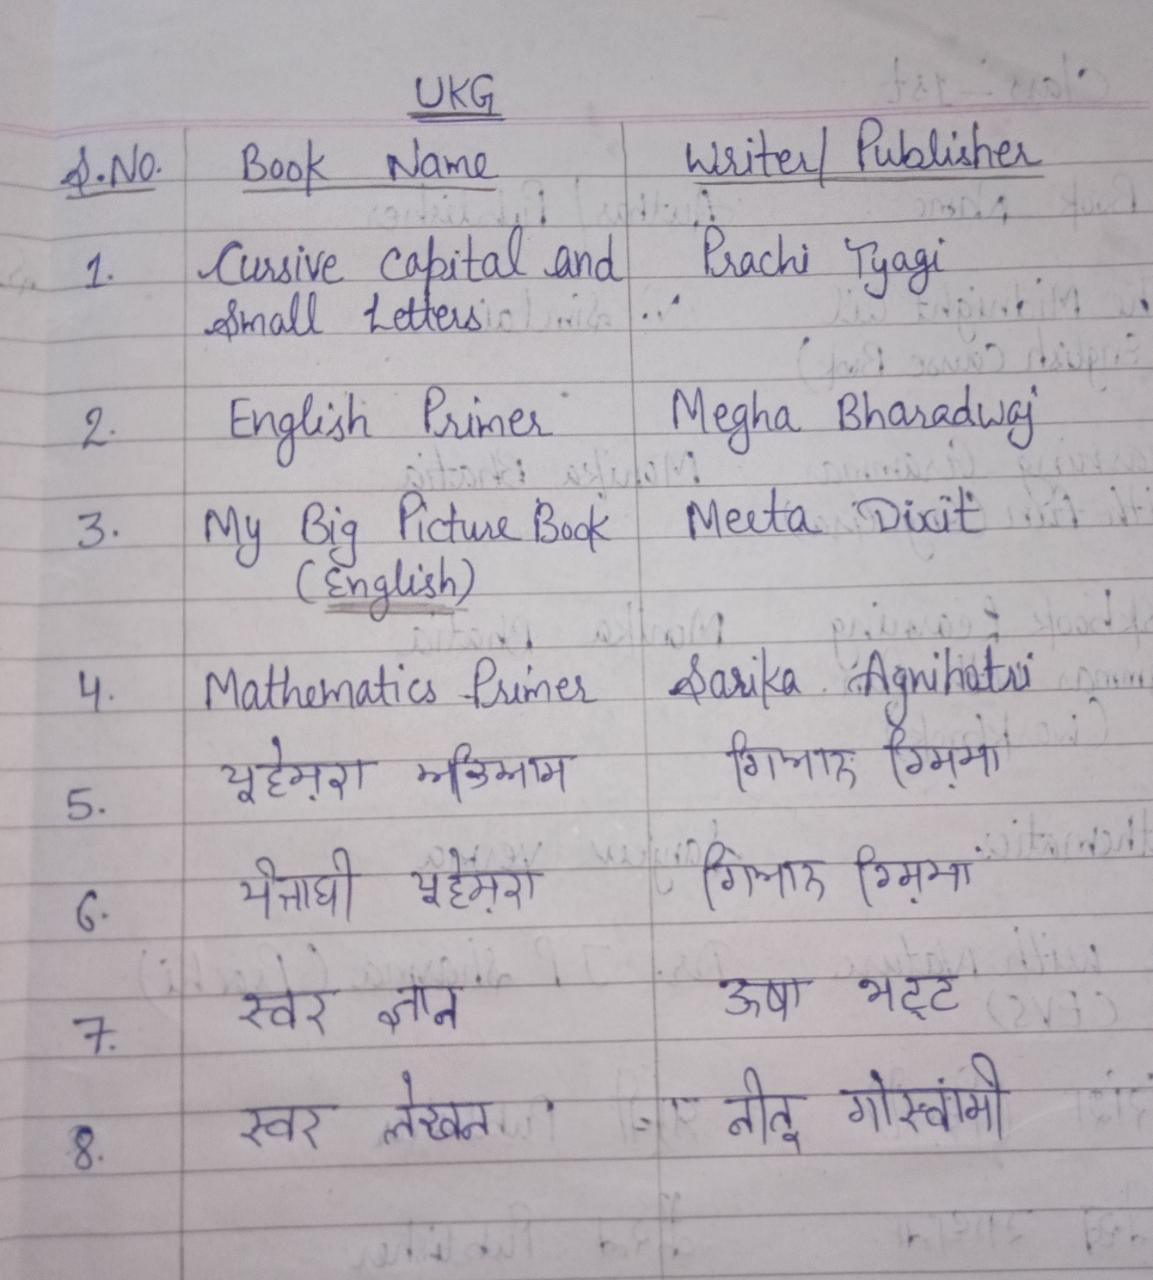 UKG
S.No. Book Name Writer/ Publisher
1. Cursive Capital and Prachi Tyagi
Small Letters
2. English Primer Megha Bharadwaj
3. My Big Picture Book Meeta Dixit
(English)
4. Mathematics Primer Sarika Agnihotri
5. ਅਭਿਆਸ
6. ਪੰਜਾਬੀ
7. स्वर ज्ञान ऊषा भट्ट
8. स्वर लेखन नीतू गोस्वामी